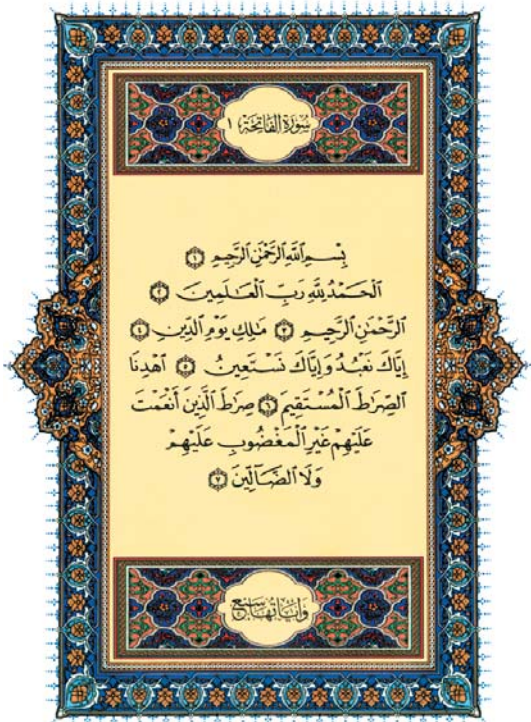 سُورَةُ الْفَاتِحَةِ ١
بِسْمِ اللَّهِ الرَّحْمَٰنِ الرَّحِيمِ ١
الْحَمْدُ لِلَّهِ رَبِّ الْعَالَمِينَ ٢
الرَّحْمَٰنِ الرَّحِيمِ ٣ مَٰلِكِ يَوْمِ الدِّينِ ٤
إِيَّاكَ نَعْبُدُ وَإِيَّاكَ نَسْتَعِينُ ٥ اهْدِنَا
الصِّرَٰطَ الْمُسْتَقِيمَ ٦ صِرَٰطَ الَّذِينَ أَنْعَمْتَ
عَلَيْهِمْ غَيْرِ الْمَغْضُوبِ عَلَيْهِمْ
وَلَا الضَّآلِّينَ ٧
وَآيَاتُهَا سَبْعٌ